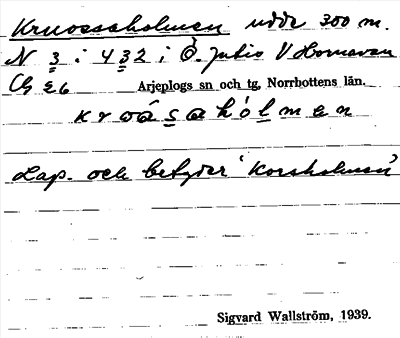 Kruossaholmen udde 300 m.
N 3 i 432 i Ö. Jutis V Hornavan
Cg 26 Arjeplogs sn och tg, Norrbottens län.
krọ̄ásahólmen
Lap. och betyder 'Korsholmen'
Sigvard Wallström, 1939.